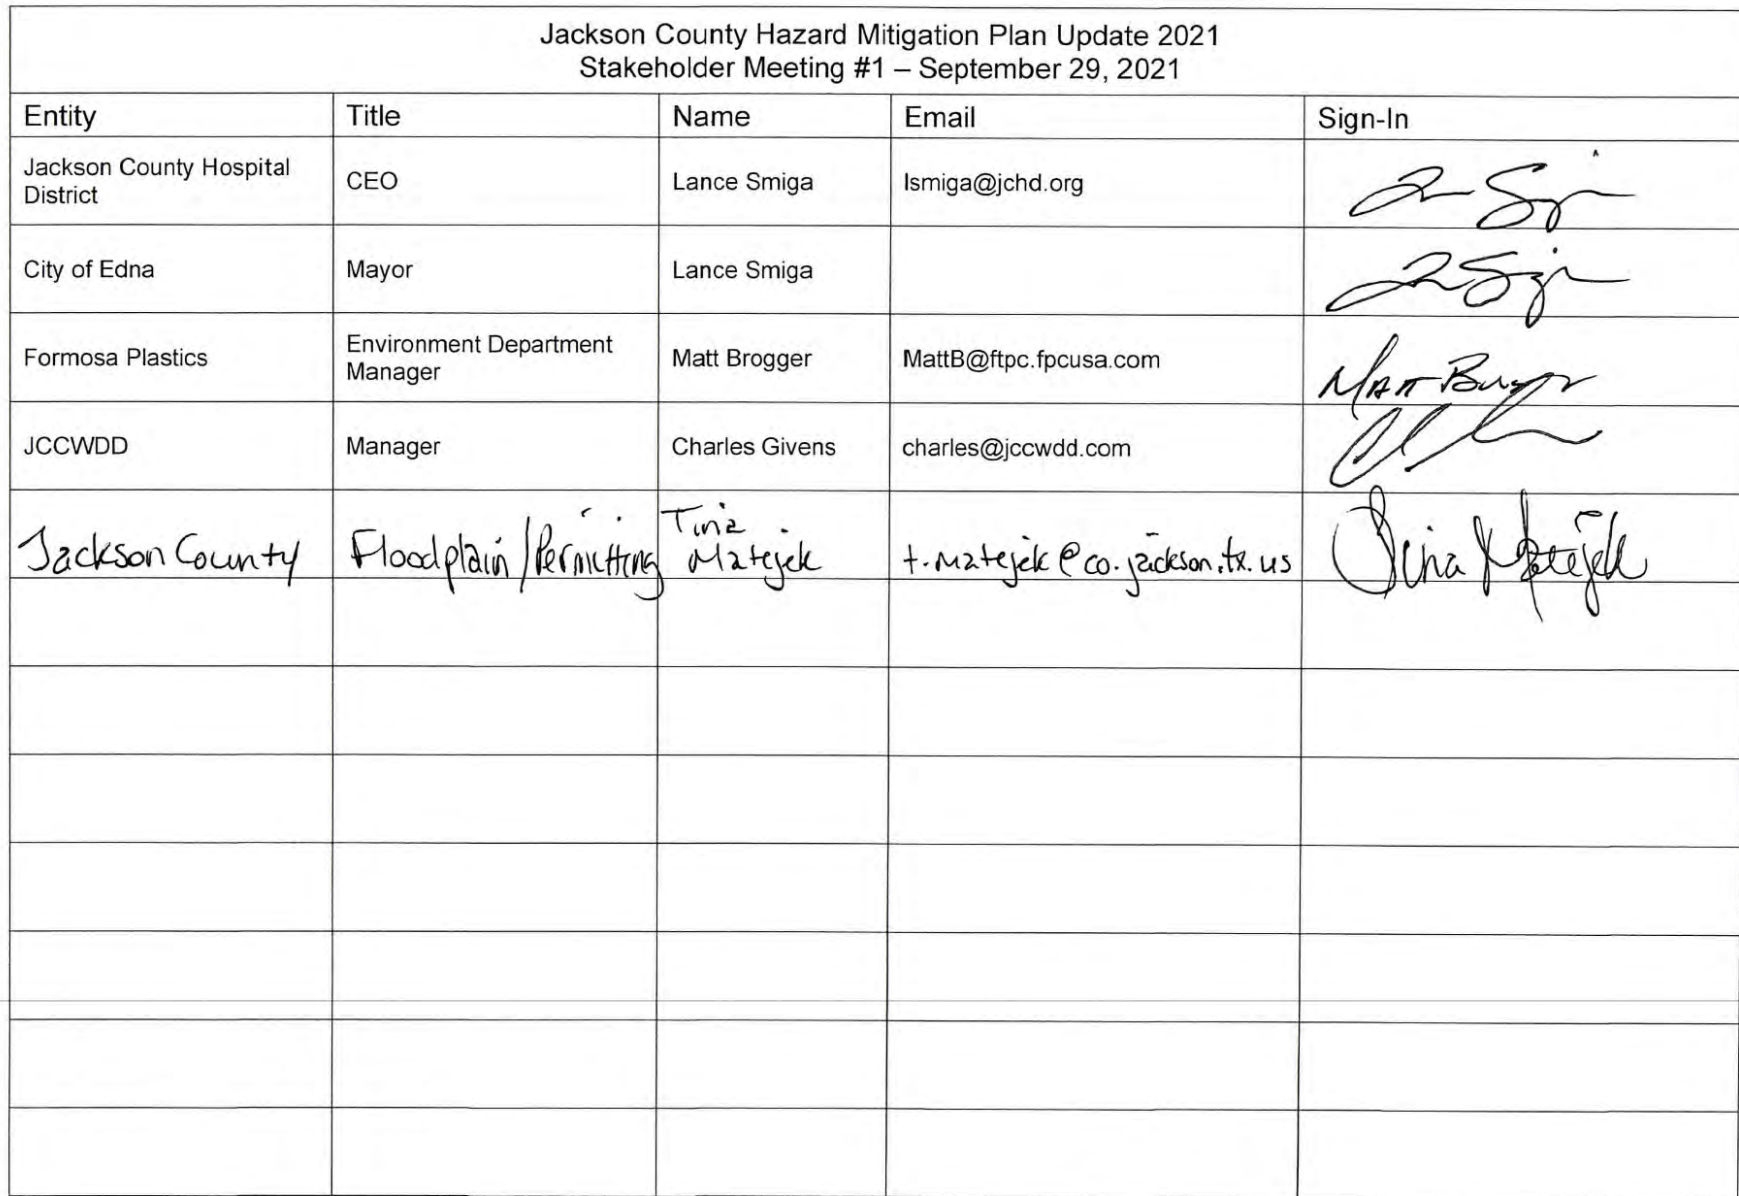 Jackson County Hazard Mitigation Plan Update 2021
Stakeholder Meeting #1 – September 29, 2021
Entity Title Name Email Sign-In
Jackson County Hospital
District
CEO Lance Smiga lsmiga@jchd.org
City of Edna Mayor Lance Smiga
Formosa Plastics
Environment Department
Manager
Matt Brogger MattB@ftpc.fpcusa.com
Matt
JCCWDD Manager Charles Givens charles@jccwdd.com
Jackson County Floodplain/Permitting
Tina
Matejek
t.matejek@co.jackson.tx.us Tina Matejek